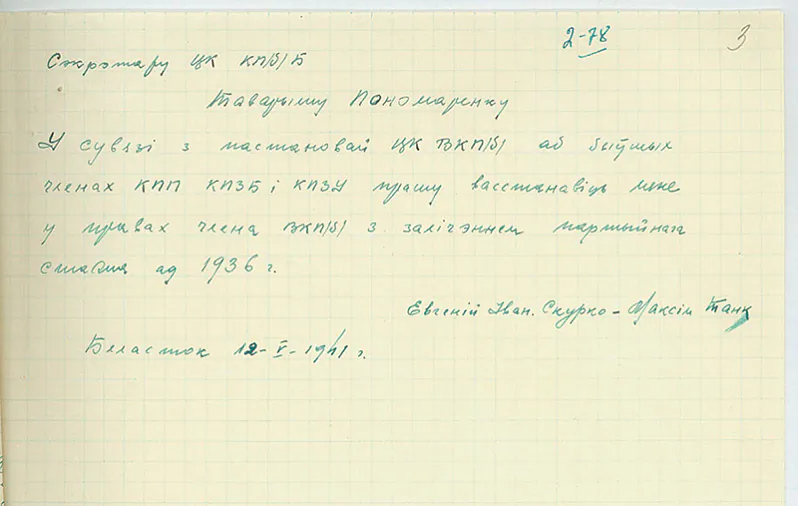 2-78
3
Сэкрэтару ЦК КП/б/Б
Таварышу Пономаренку
У сувязі з пастановай ЦК ВКП/б/ аб быўшых
членах КПП КПЗБ і КПЗУ прашу васстанавіць мене
у правах члена ВКП/б/ з залічэннем партыйнага
стажа ад 1936 г.
Евгеній Іван. Скурко – Максім Танк
Беласток 12-V-1941 г.